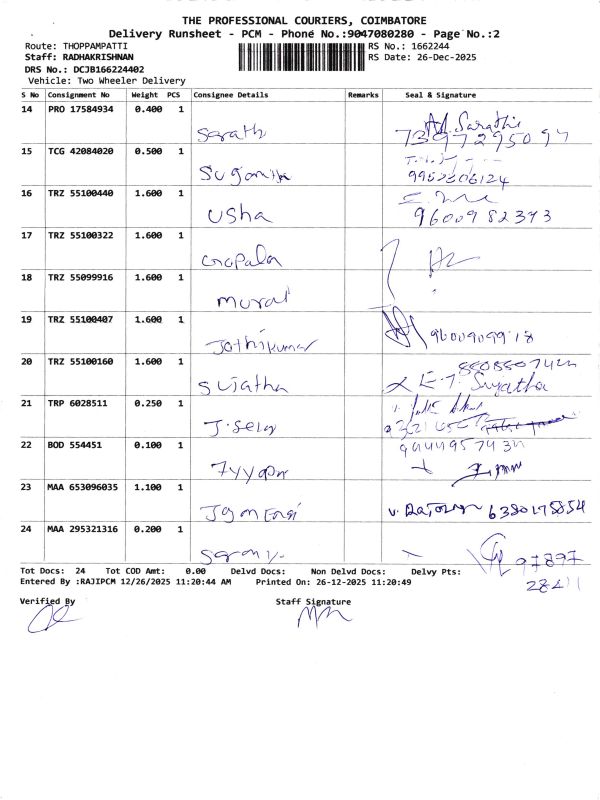 THE PROFESSIONAL COURIERS, COIMBATORE
Delivery Runsheet - PCM - Phone No.:9047080280 - Page No.:2
Route: THOPPAMPATTI
RS No.: 1662244
Staff: RADHAKRISHNAN
RS Date: 26-Dec-2025
DRS No.: DCJB166224402
Vehicle: Two Wheeler Delivery
S No Consignment No Weight PCS Consignee Details Remarks Seal & Signature
14 PRO 17584934 0.400 1
Sarath Sarathi
7397295097
15 TCG 42084020 0.500 1
Suganthi
16 TRZ 55100440 1.600 1
Usha 9600982393
17 TRZ 55100322 1.600 1
Gopalan
18 TRZ 55099916 1.600 1
Murali
19 TRZ 55100407 1.600 1
Jothikumar 9600909918
20 TRZ 55100160 1.600 1
Sujatha
21 TRP 6028511 0.250 1
J. Selv
22 BOD 554451 0.100 1
23 MAA 653096035 1.100 1
24 MAA 295321316 0.200 1
97897
Tot Docs: 24 Tot COD Amt: 0.00 Delvd Docs: Non Delvd Docs: Delvy Pts:
Entered By :RAJIPCM 12/26/2025 11:20:44 AM Printed On: 26-12-2025 11:20:49
Verified By Staff Signature